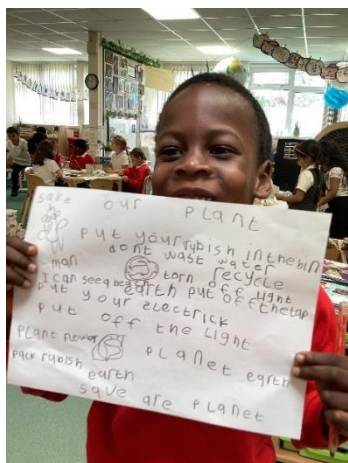 save our PLANT
put your rubish in the bin
dont wast water
man torn recycle
I can see a bee earth put off light
put off the tap
put your electrick
put off the light
PLANT flower PLANet earth
pack rubish earth
save are PLANet